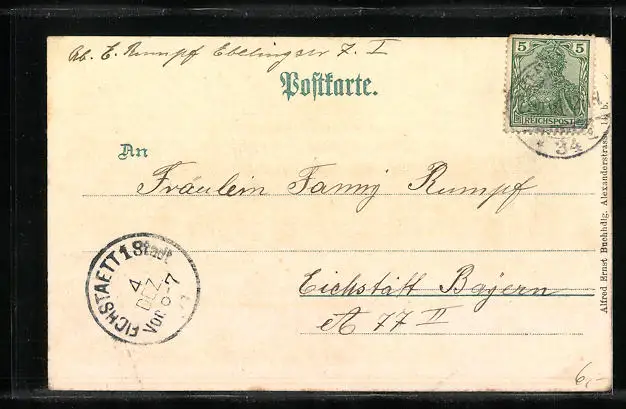 Ab. E. Rumpf Ebelingstr 7. I
Postkarte.
5 5
REICHSPOST
* 34
An
Fräulein Fanny Rumpf
Eichstätt Bayern
A 77 II
EICHSTAETT 1 Stadt
4
DEZ
Vor. 6-7
Alfred Ernst Buchhdlg. Alexanderstrasse
6,-